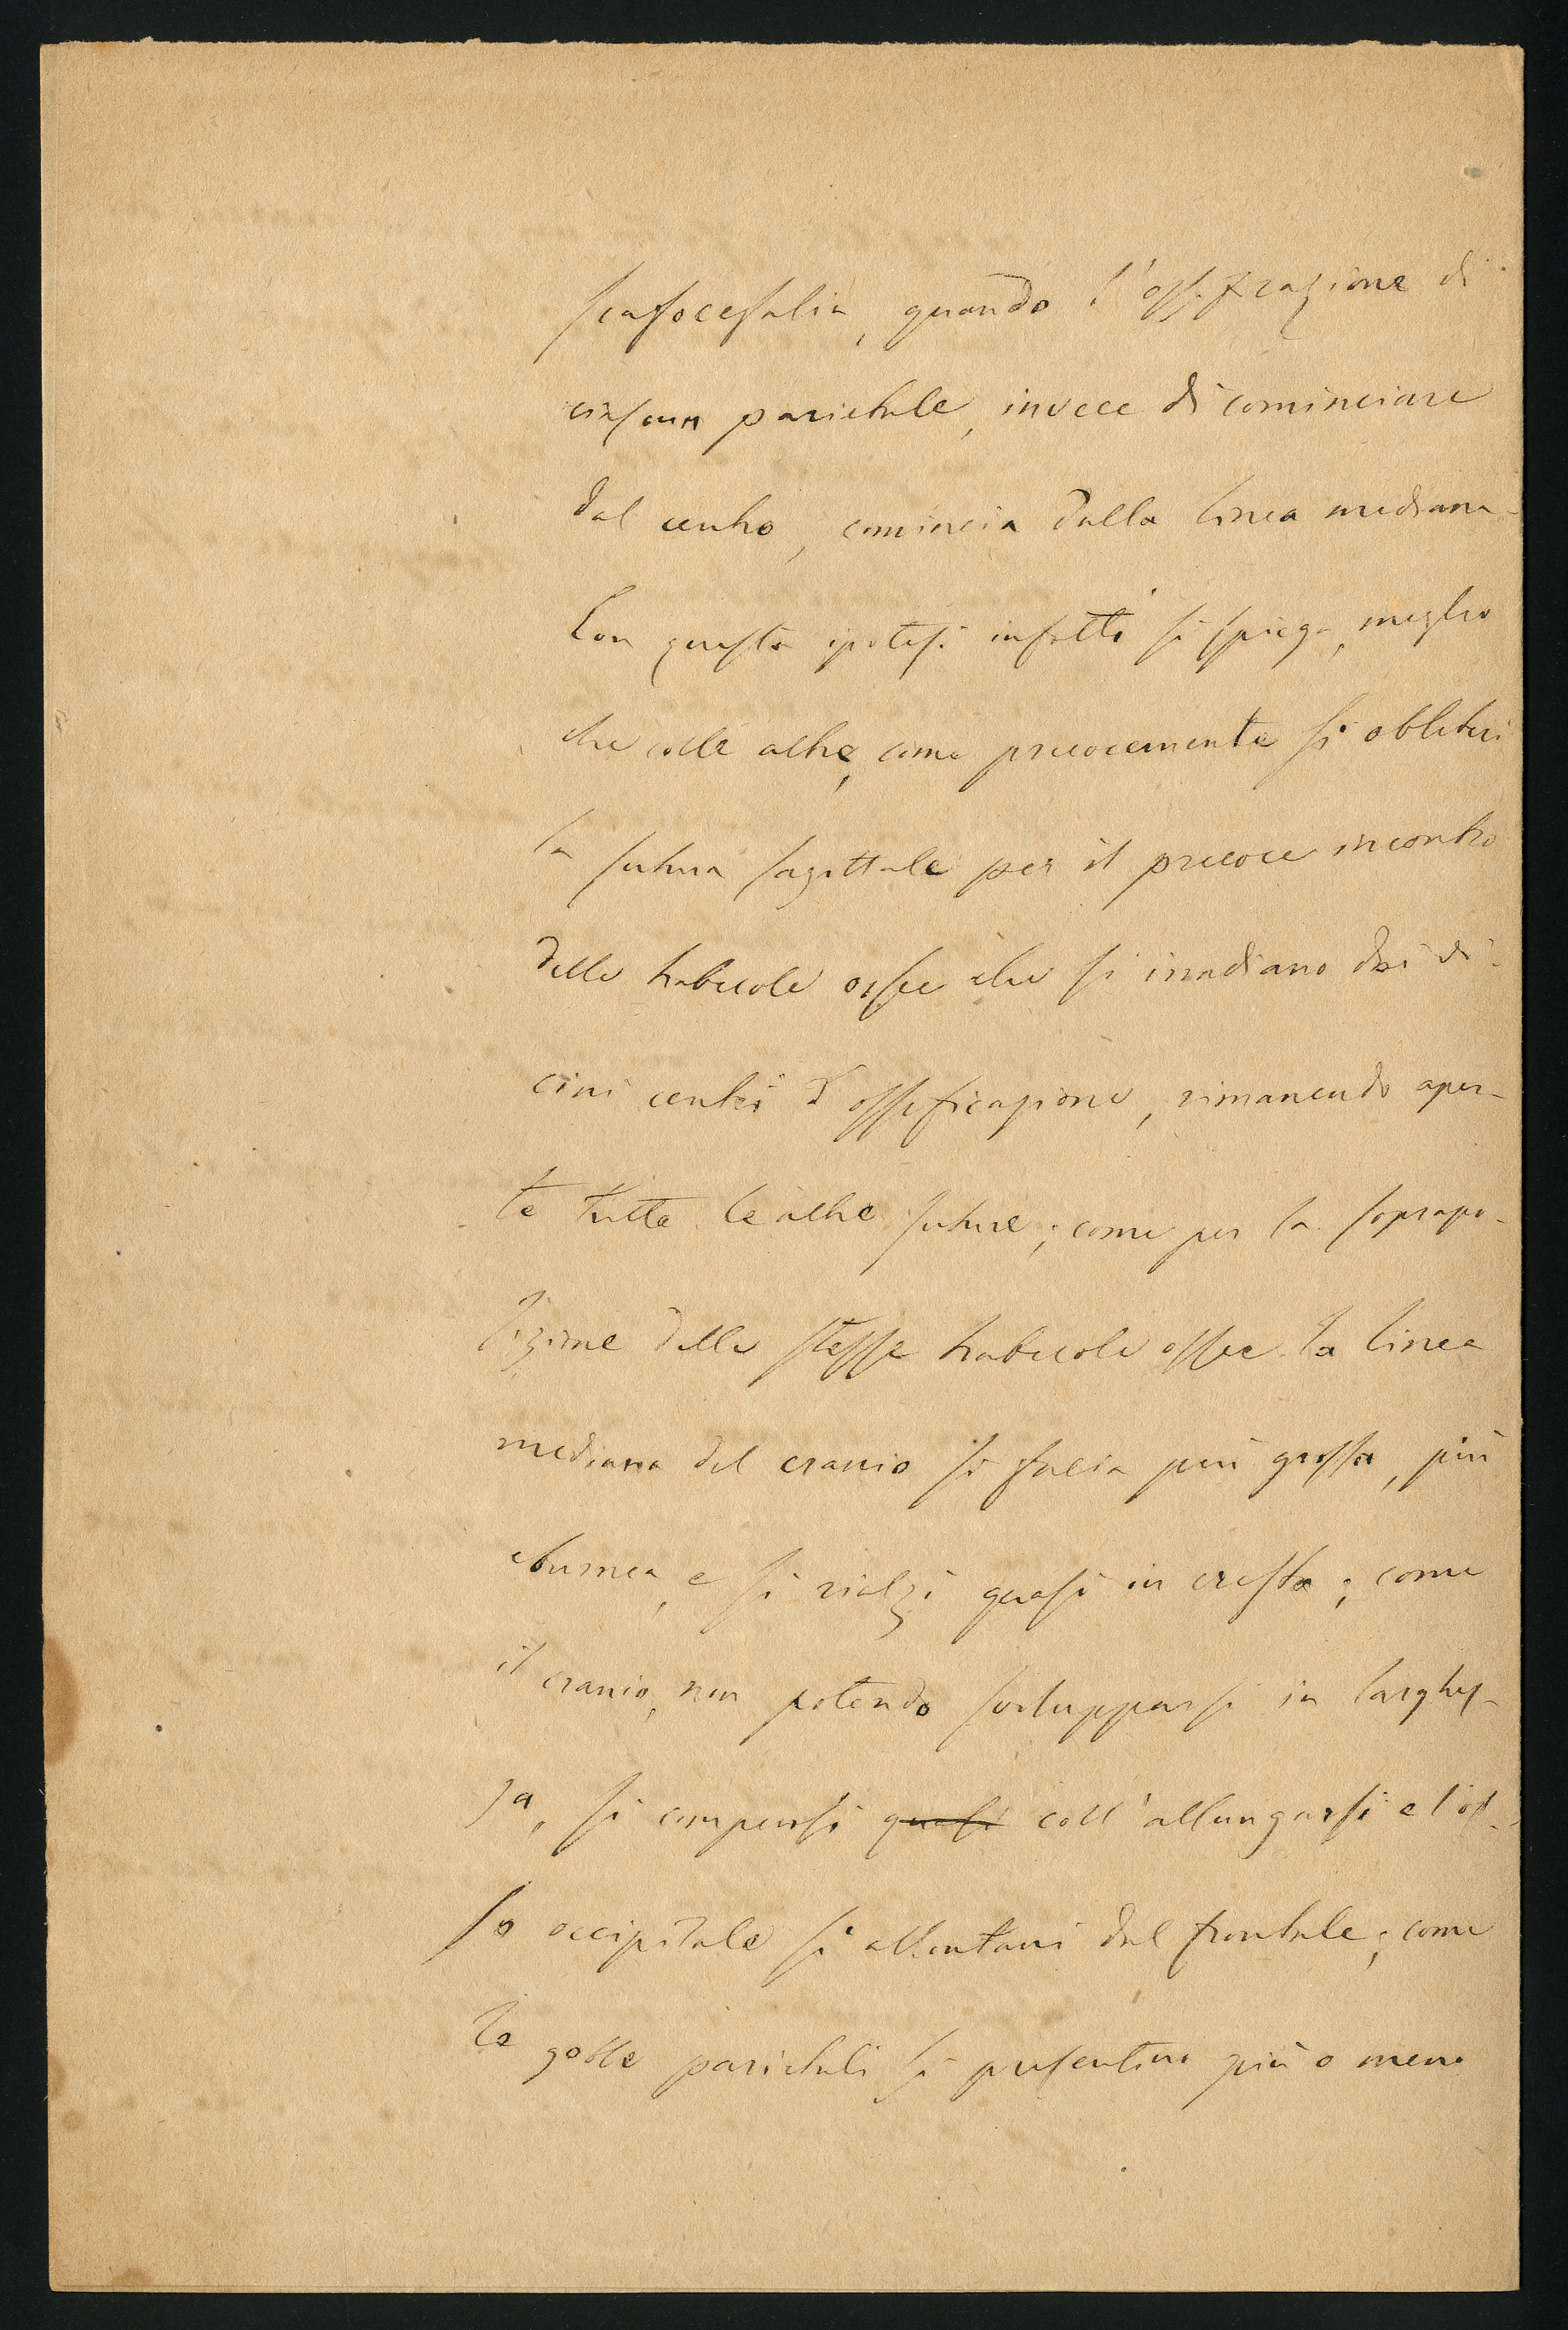 scafocefalia, quando l'ossificazione di
ciascun parietale, invece di cominciare
dal centro, comincia dalla linea mediana.
Con questa ipotesi infatti si spiega, meglio
che colle altre, come precocemente si obliteri
la sutura sagittale per il precoce incontro
delle trabecole ossee che si irradiano dai vi-
cini centri d'ossificazione, rimanendo aper-
te tutte le altre suture; come per la soprapo-
sizione delle stesse trabecole ossee la linea
mediana del cranio si faccia più grossa, più
eburnea, e si rialzi quasi in cresta; come
il cranio, non potendo svilupparsi in larghez-
za, si compensi ~~quasi~~ coll'allungarsi e l'os-
so occipitale si allontani dal frontale; come
le gobbe parietali si presentino più o meno